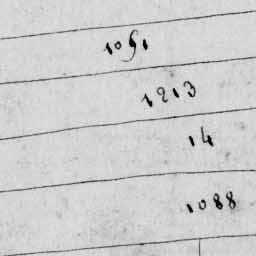 1051
1213
14
1088